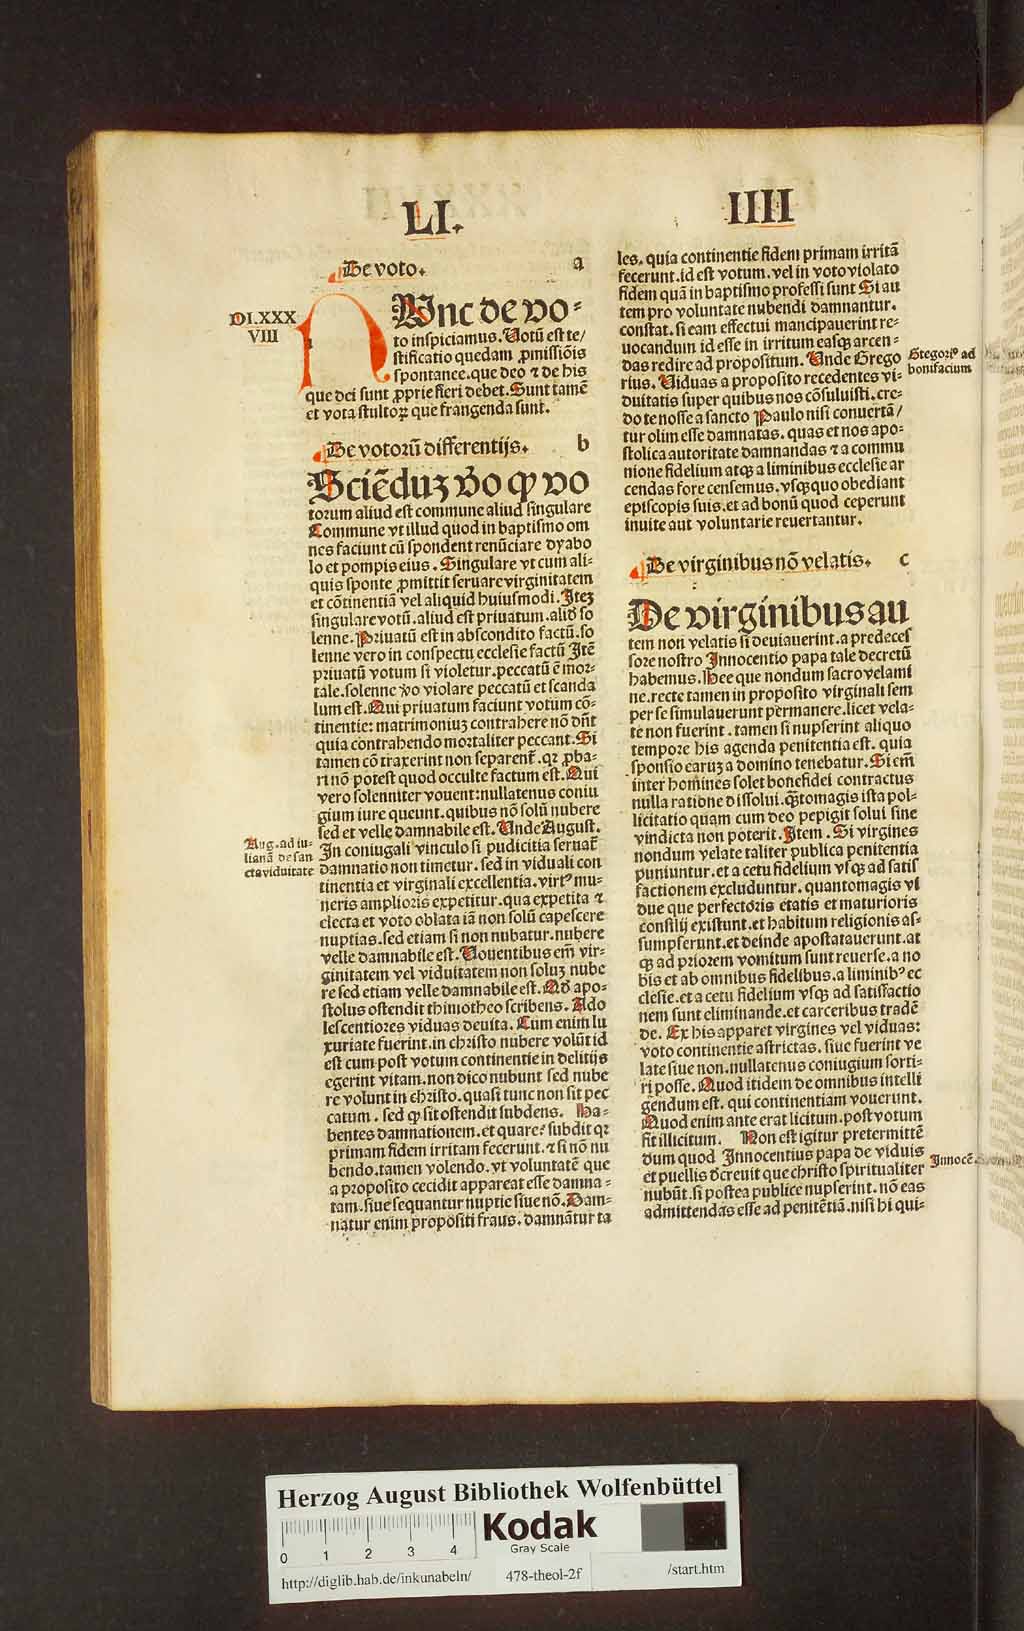 LI.
IIII
De voto. a
DI.XXX
VIII
NUnc de vo-
to inspiciamus. Votū est te/
stificatio quedam ꝓmissiōis
spontanee. que deo ⁊ de his
que dei sunt ꝓprie fieri debet. Sunt tamē
et vota stultoꝝ que frangenda sunt.
De votorū differentijs. b
Sciēduꝫ ꝟo ꝙ vo
torum aliud est commune aliud singulare
Commune vt illud quod in baptismo om
nes faciunt cū spondent renūciare dyabo
lo et pompis eius. Singulare vt cum ali-
quis sponte ꝓmittit seruare virginitatem
et cōtinentiā vel aliquid huiusmodi. Iteꝫ
singulare votū. aliud est priuatum. aliđ so
lenne. Priuatū est in abscondito factū. so
lenne vero in conspectu ecclesie factū Itē
priuatū votum si violetur. peccatū ē mor-
tale. solenne ꝟo violare peccatū et scanda
lum est. Qui priuatum faciunt votum cō-
tinentie: matrimoniuꝫ contrahere nō dn̄t
quia contrahendo mortaliter peccant. Si
tamen cō traxerint non separent᷑. qꝛ ꝓba-
ri nō potest quod occulte factum est. Qui
vero solenniter vouent: nullatenus coniu
gium iure queunt. quibus nō solū nubere
sed et velle damnabile est. Unde August.
Aug. ad iu-
lianā de san
cta viduitate
In coniugali vinculo si pudicitia seruat᷑
damnatio non timetur. sed in viduali con
tinentia et virginali excellentia. virtꝰ mu-
neris amplioris expetitur. qua expetita ⁊
electa et voto oblata iā non solū capescere
nuptias. sed etiam si non nubatur. nubere
velle damnabile est. Uouentibus em̄ vir-
ginitatem vel viduitatem non soluꝫ nube
re sed etiam velle damnabile est. Ađ apo-
stolus ostendit thimotheo scribens. Ado
lescentiores viduas deuita. Cum enim lu
xuriate fuerint. in christo nubere volūt id
est cum post votum continentie in delitijs
egerint vitam. non dico nubunt sed nube
re volunt in christo. quasi tunc non sit pec
catum. sed ꝙ sit ostendit subdens. Ha-
bentes damnationem. et quare: subdit qꝛ
primam fidem irritam fecerunt. ⁊ si nō nu
bendo. tamen volendo. vt voluntatē que
a proposito cecidit appareat esse damna-
tam. siue sequantur nuptie siue nō. Dam-
natur enim propositi fraus. damnātur ta
les. quia continentie fidem primam irritā
fecerunt. id est votum. vel in voto violato
fidem quā in baptismo professi sunt Si au
tem pro voluntate nubendi damnantur.
constat. si eam effectui mancipauerint re-
uocandum id esse in irritum easqꝫ arcen-
das redire ad propositum. Unde Grego
Gregoriꝰ ad
bonifacium
rius. Uiduas a proposito recedentes vi-
duitatis super quibus nos cōsuluisti. cre-
do te nosse a sancto Paulo nisi conuertā/
tur olim esse damnatas. quas et nos apo-
stolica autoritate damnandas ⁊ a commu
nione fidelium atqꝫ a liminibus ecclesie ar
cendas fore censemus. vsqꝫquo obediant
episcopis suis. et ad bonū quod ceperunt
inuite aut voluntarie reuertantur.
De virginibus nō velatis. c
De virginibus au
tem non velatis si deuiauerint. a predeces
sore nostro Innocentio papa tale decretū
habemus. Hee que nondum sacro velami
ne. recte tamen in proposito virginali sem
per se simulauerunt permanere. licet vela-
te non fuerint. tamen si nupserint aliquo
tempore his agenda penitentia est. quia
sponsio earuꝫ a domino tenebatur. Si em̄
inter homines solet bonefidei contractus
nulla ratione dissolui. q̄ntomagis ista pol-
licitatio quam cum deo pepigit solui sine
vindicta non poterit. Item. Si virgines
nondum velate taliter publica penitentia
puniuntur. et a cetu fidelium vsqꝫ ad satis
factionem excluduntur. quantomagis vi
due que perfectoris etatis et maturioris
consilij existunt. et habitum religionis as-
sumpserunt. et deinde apostatauerunt. at
qꝫ ad priorem vomitum sunt reuerse. a no
bis et ab omnibus fidelibus. a liminibꝰ ec
clesie. et a cetu fidelium vsqꝫ ad satisfactio
nem sunt eliminande. et carceribus tradē
de. Ex his apparet virgines vel viduas:
voto continentie astrictas. siue fuerint ve
late siue non. nullatenus coniugium sorti-
ri posse. Quod itidem de omnibus intelli
gendum est. qui continentiam vouerunt.
Quod enim ante erat licitum. post votum
fit illicitum. Non est igitur pretermittē
dum quod Innocentius papa de viduis
Innocē
et puellis dcreuit que christo spiritualiter
nubūt. si postea publice nupserint. nō eas
admittendas esse ad penitētiā. nisi hi qui-
Herzog August Bibliothek Wolfenbüttel
0 1 2 3 4
Kodak
Gray Scale
http://diglib.hab.de/inkunabeln/ 478-theol-2f /start.htm